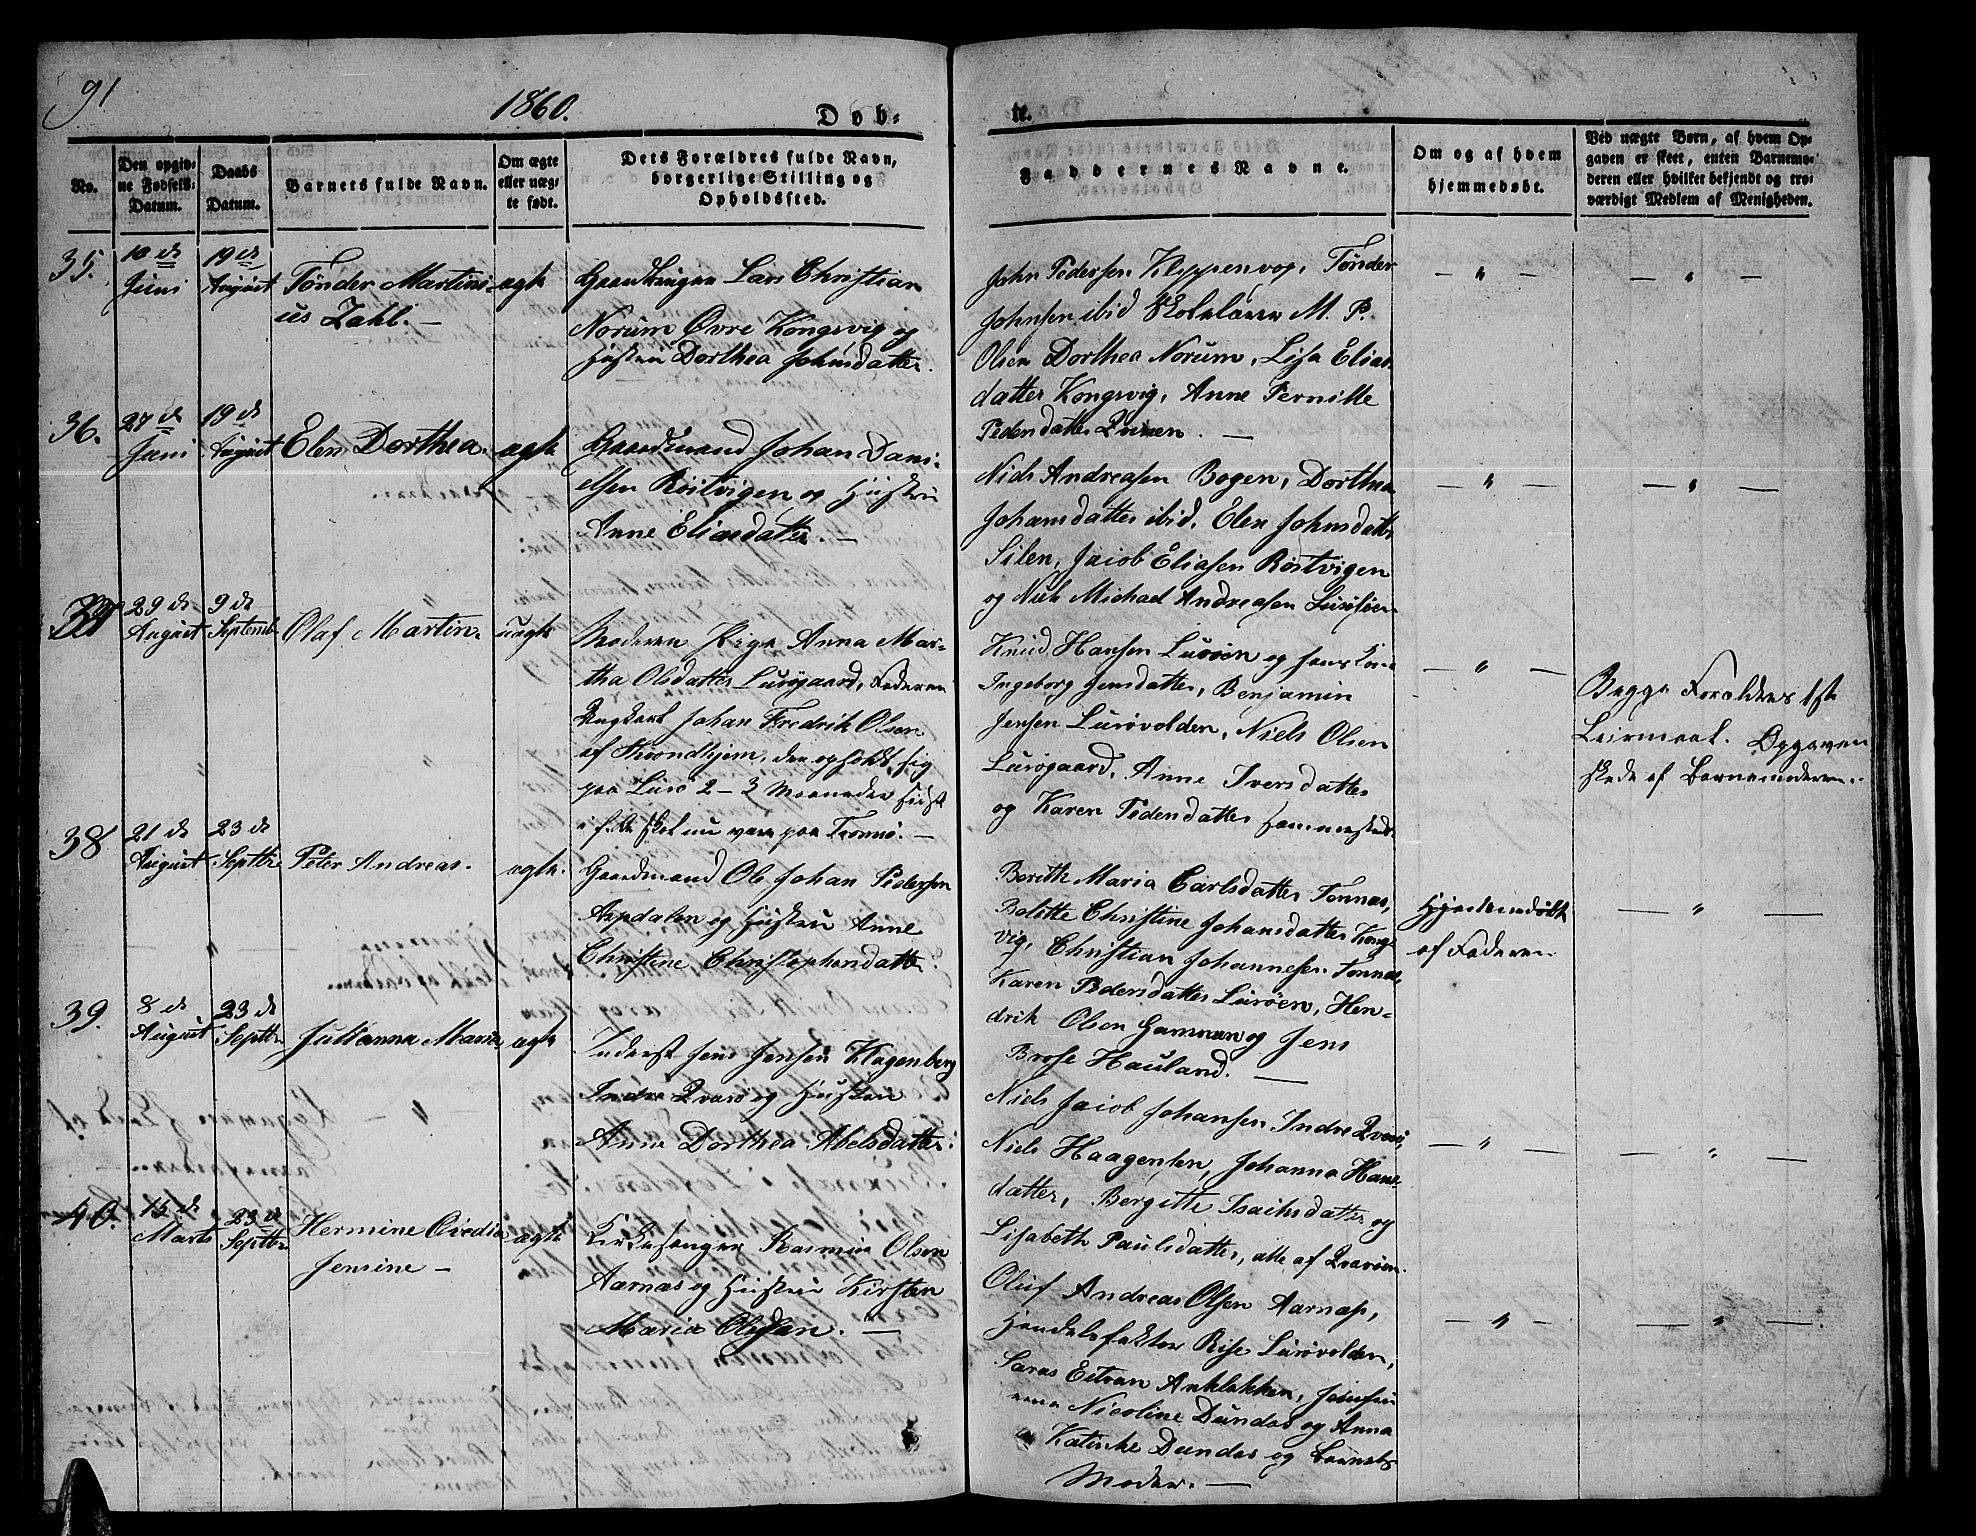 91
1860.
Døb-
te.
No.
Den opgiv-
ne Fødsels-
Datum.
Daabs
Datum.
Barnets fulde Navn.
Om ægte
eller uæg-
te født.
Dets Forældres fulde Navn,
borgerlige Stilling og
Opholdssted.
Faddernes Navne.
Om og af hvem
hjemmedøbt.
Ved uægte Børn, af hvem Op-
gaven er skeet, enten Barnemo-
deren eller hvilket bekjendt og tro-
værdigt Medlem af Menigheden.
35.
10 de
Juni
19 de
August
Tønder Martini-
us Zahl. —
ægte
Lars Christian
Norum Øvre Kongsvig og
Hustru Dorthea Johnsdatter.
John Pedersen Kleppenvog, Tønder
Johnsen ibid Skolelærer M. P.
Olsen Dorthea Norum, Lisa Elias-
datter Kongsvig, Anne Pernille
Pedersdatter
— " —
— " —
36.
27 de
Juni
19 de
August
Elen Dorthea.
ægte
Gaardmand Johan Dani-
elsen Røstvigen og Hustru
Anne Eliasdatter. —
Niels Andreasen Bogen, Dorthea
Johansdatter ibid, Elen Johnsdatter
Silen, Jacob Eliasen Røstvigen
og Niels Michael Andreasen Lurøføen
— " —
— " —
37
29 de
August
9 de
Septemb
Olaf Martin.
uægte
Moderen Pige Anna Mar-
tha Olsdatter Lurøgaard, Faderen
Ungkarl Johan Fredrik Olsen
af Throndhjem, der opholdt sig
paa Lurø 2 – 3 Maaneder sidst
skal nu være paa Tromsø. —
Knud Hansen Lurøen og hans Kone
Ingeborg Jensdatter, Benjamin
Jensen Lurøvolden, Niels Olsen
Lurøgaard, Anne Iversdatter
og Karen Pedersdatter
— " —
Begge Forældres 1ste
Leiermaal. Opgaven
skede af Barnemoderen.
38
21 de
August
23 de
Septbr
Peter Andreas.
ægte.
Gaardmand Ole Johan Pedersen
Aspdalen og Hustru Anne
Christine Christophersdatter.
Berith Maria Carlsdatter Tonnes,
Bolette Christine Johansdatter Kongs-
vig, Christian Johannesen Tonnes,
Karen Pedersdatter Lurøen, Hen-
drik Olsen og Jens
Brose Hauland. —
Hjemmedøbt
af Faderen
— " —
39.
8 de
August
23 de
Septbr
Julianna Maria
ægte
Inderst Jens Jensen Klagenberg
Indre Qvarø og Hustru
Anne Dorthea Abelsdatter.
Niels Jacob Johansen Indre Qvarø,
Niels Haagensen, Johanna Hans-
datter, Bergitte Isachsdatter og
Lisabeth Paulsdatter, alle af Qvarøen.
— " —
— " —
40.
15 de
Marts
23 de
Septbr
Hermine Ovedia
Jensine —
ægte
Kirkesanger Rasmus Olsen
Aarnæs og Hustru Kirsten
Maria Olsen. —
Oluf Andreas Olsen Aarnæs,
Handelsfaktor Rise Lurøvolden,
Nicoline Dundas og Anna
Katinke Dundas og Barnets
Moder. —
— " —
— " —